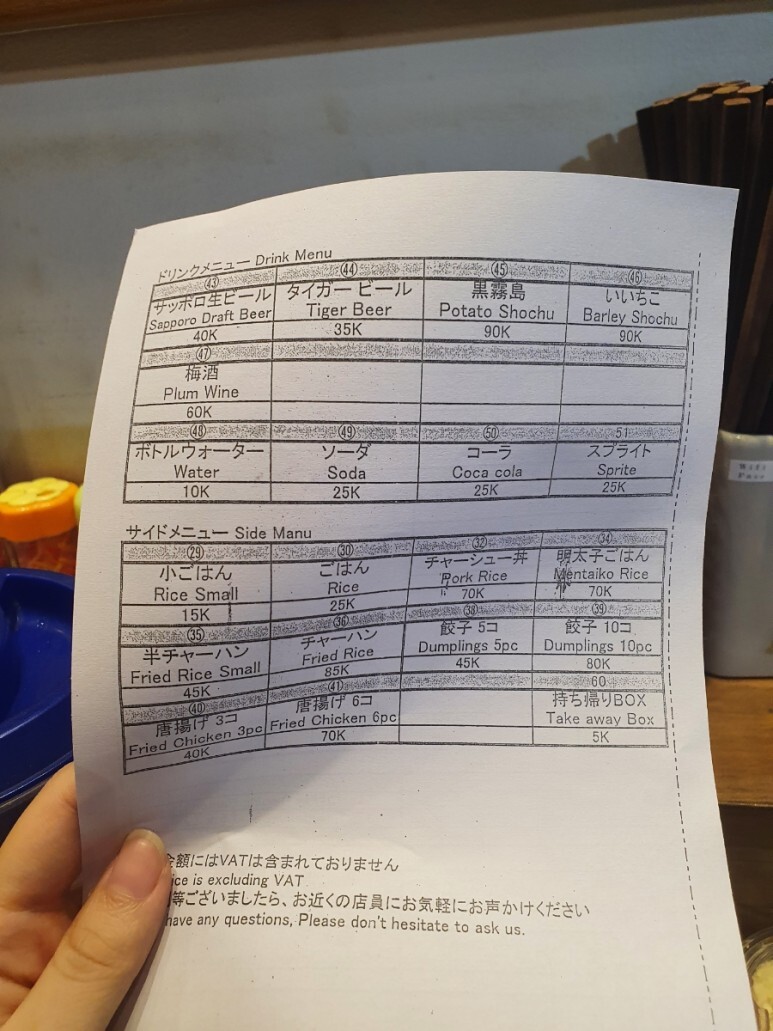 ドリンクメニュー Drink Menu
㊸ ㊹ ㊺ ㊻
サッポロ生ビール タイガー ビール 黒霧島 いいちこ
Sapporo Draft Beer Tiger Beer Potato Shochu Barley Shochu
40K 35K 90K 90K
㊼
梅酒
Plum Wine
60K
㊽ ㊾ ㊿ 51
ボトルウォーター ソーダ コーラ スプライト
Water Soda Coca cola Sprite
10K 25K 25K 25K
サイドメニュー Side Manu
㉙ ㉚ ㉜ ㉞
小ごはん ごはん チャーシュー丼 明太子ごはん
Rice Small Rice Pork Rice Mentaiko Rice
15K 25K 70K 70K
㉟ ㊱ ㊳ ㊴
半チャーハン チャーハン 餃子 5コ 餃子 10コ
Fried Rice Small Fried Rice Dumplings 5pc Dumplings 10pc
45K 85K 45K 80K
㊵ ㊶ 60
唐揚げ 3コ 唐揚げ 6コ 持ち帰りBOX
Fried Chicken 3pc Fried Chicken 6pc Take away Box
40K 70K 5K
金額にはVATは含まれておりません
ice is excluding VAT
等ございましたら、お近くの店員にお気軽にお声かけください
have any questions, Please don't hesitate to ask us.
Wifi
Pass